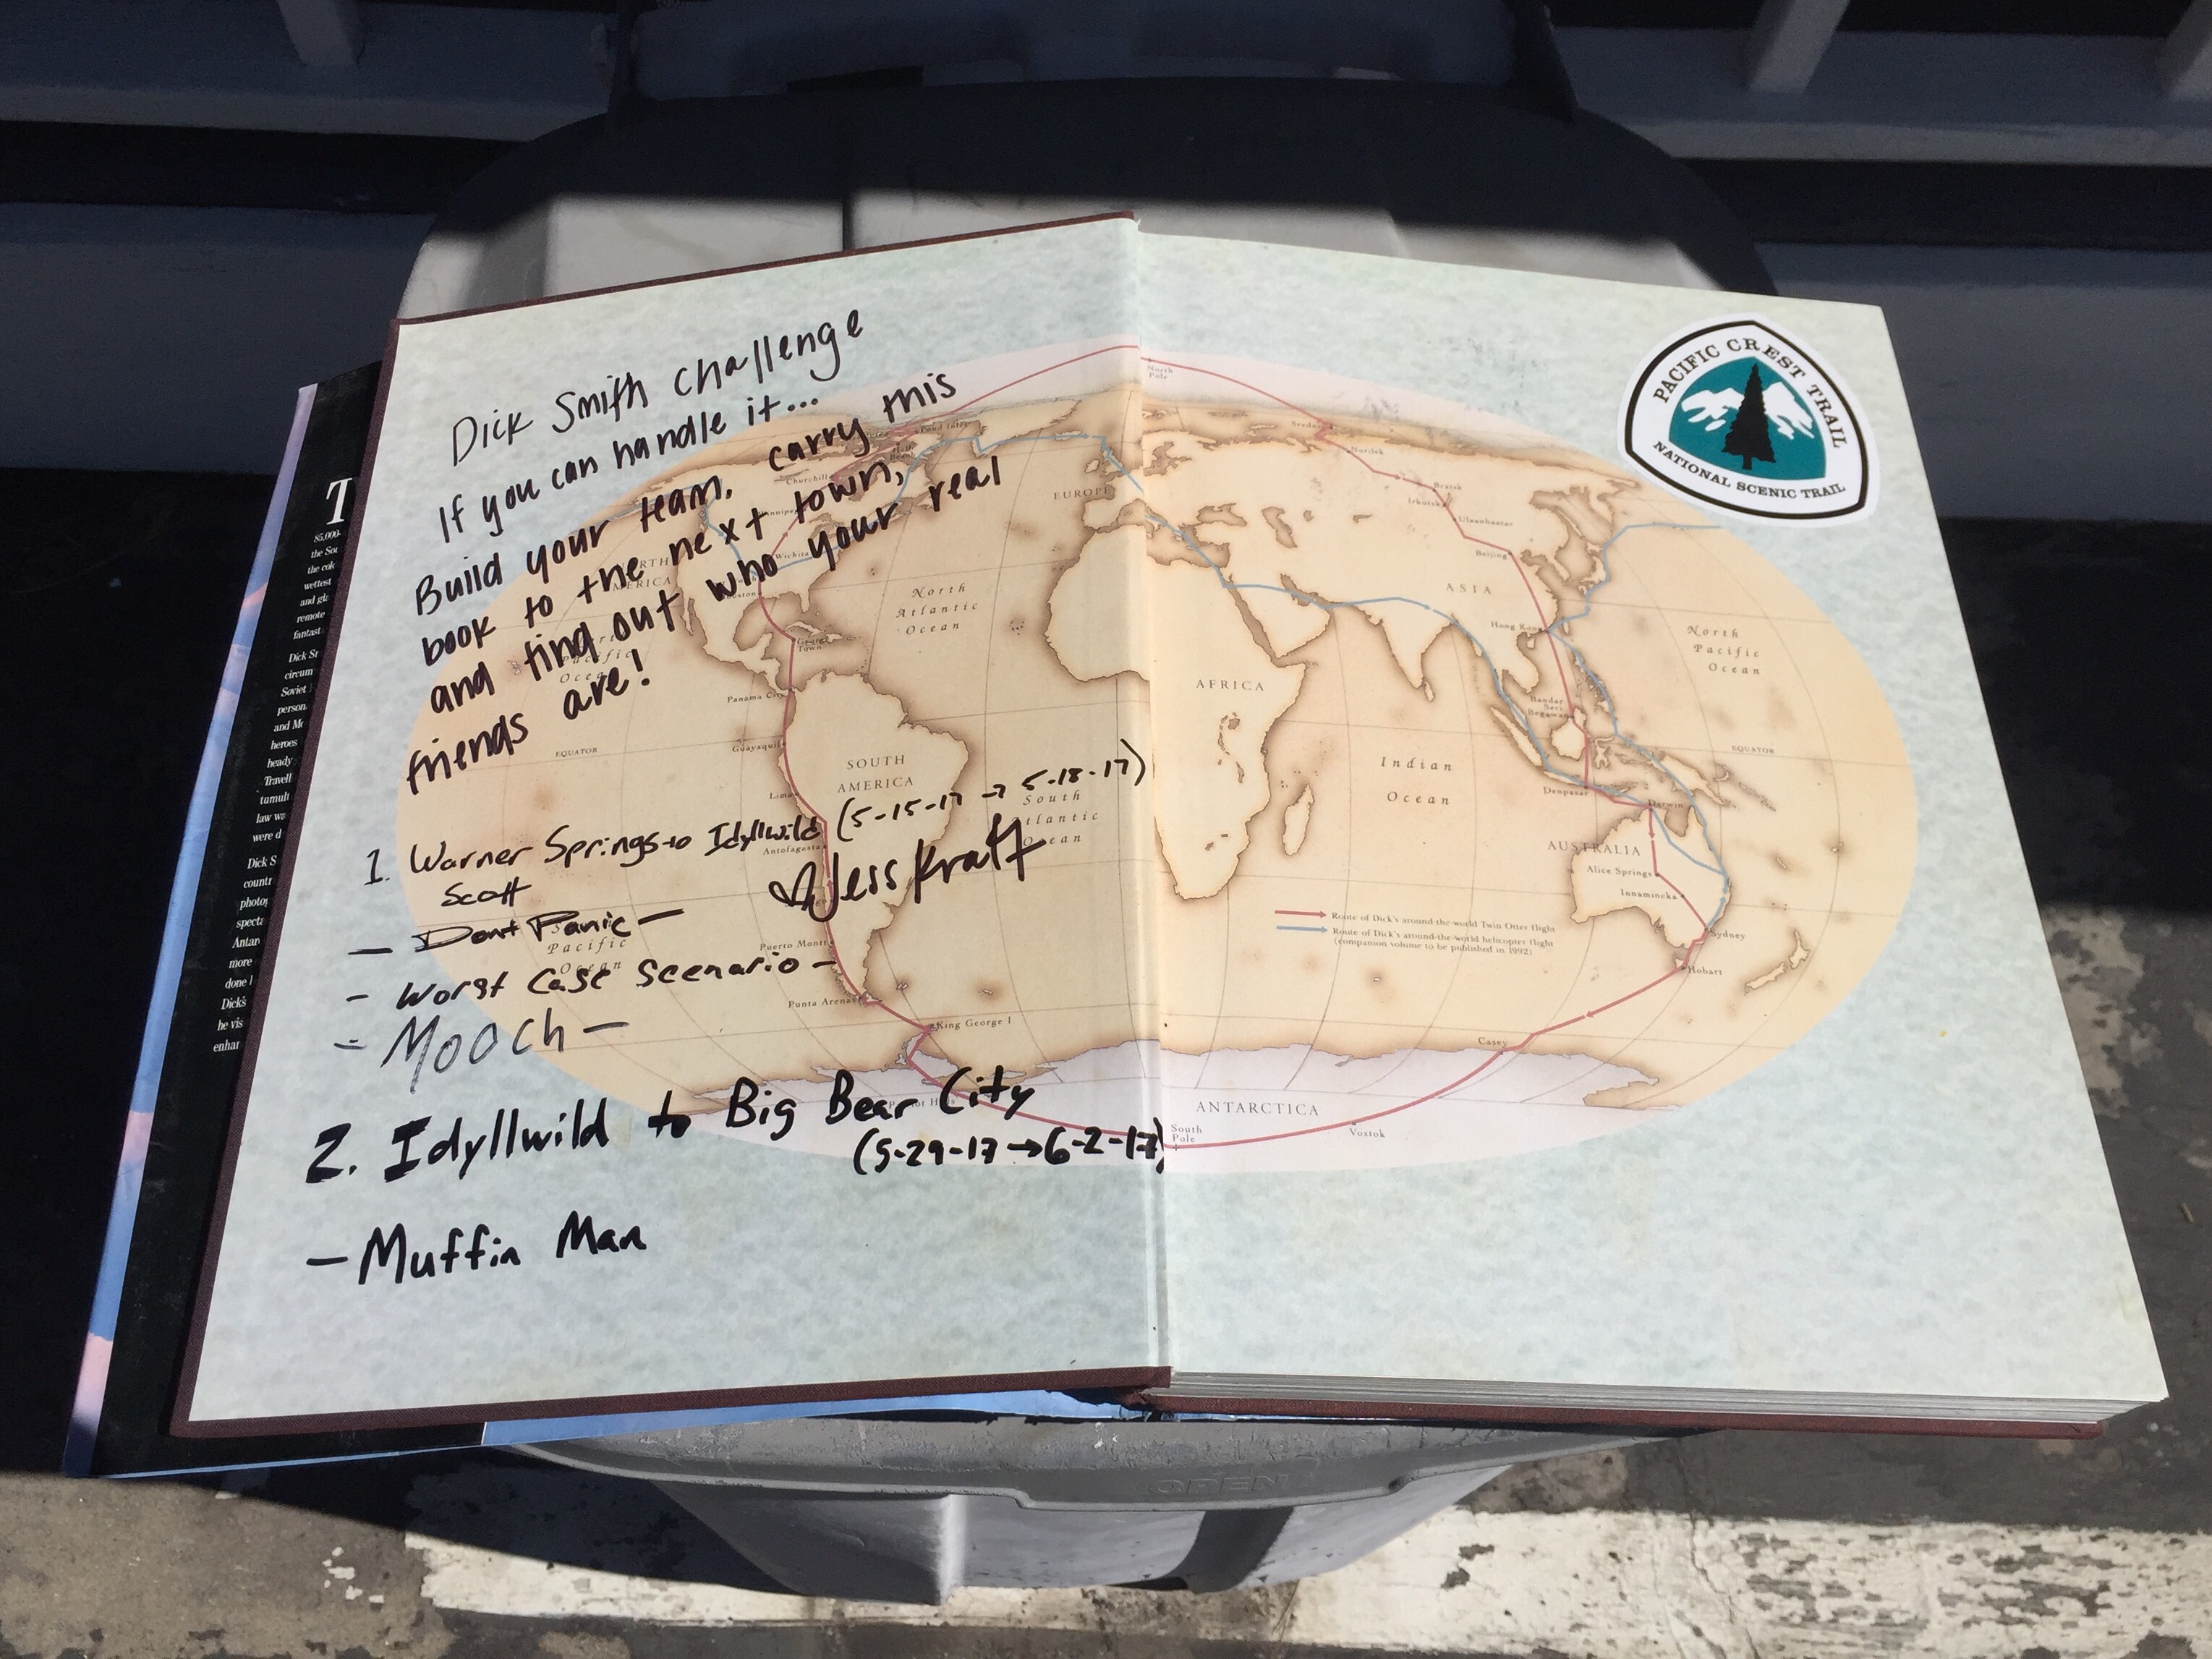 Dick Smith challenge
If you can handle it...
Build your team, carry this
book to the next town,
and find out who your real
friends are!
1. Warner Springs to Idyllwild (5-15-17 → 5-18-17)
Scott
♡ Jess Kraft
— Dont Panic —
- Worst Case Scenario -
- MOOCH -
2. Idyllwild to Big Bear City
(5-29-17 → 6-2-17)
- Muffin Man
PACIFIC CREST TRAIL
NATIONAL SCENIC TRAIL
North
Pole
Pond Inlet
Churchill
Wichita
George
Town
Panama City
Guayaquil
Lima
Antofagasta
Puerto Montt
Punta Arenas
King George I.
EQUATOR
North
Atlantic
Ocean
SOUTH
AMERICA
South
Atlantic
Ocean
Pacific
Ocean
EUROPE
AFRICA
ASIA
Norilsk
Bratsk
Irkutsk
Ulaanbaatar
Beijing
Hong Kong
Bandar
Seri
Begawan
Denpasar
Darwin
North
Pacific
Ocean
EQUATOR
Indian
Ocean
AUSTRALIA
Alice Springs
Innamincka
Sydney
Hobart
Route of Dick's around-the-world Twin Otter flight
Route of Dick's around-the-world helicopter flight
(companion volume to be published in 1992)
Casey
ANTARCTICA
South
Pole
Vostok
T
85,000-
the Sou
the col
wettest
and gla
remote
fantast
Dick Sr
circum
Soviet
person
and Mo
heroes
heady
Travell
tumult
law wa
were d
Dick S
countr
photog
specta
Antar
more
done l
Dick's
he vis
enhan
OPEN